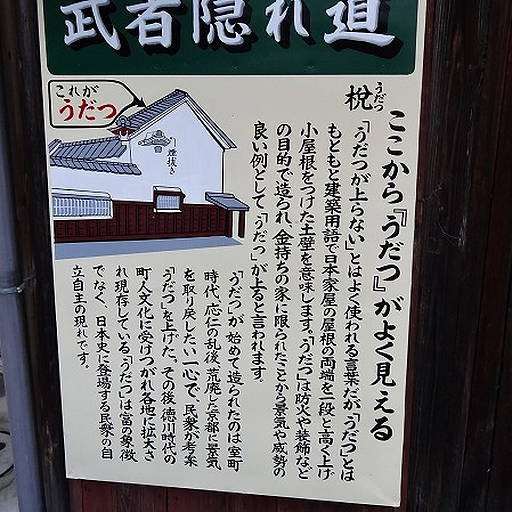 武者隠れ道
これが
うだつ
煙抜き
ここから『うだつ』がよく見える
梲
うだつ
「うだつが上らない」とはよく使われる言葉だが「うだつ」とは
もともと建築用語で日本家屋の屋根の両端を一段と高く上げ
小屋根をつけた土壁を意味します。「うだつ」は防火や装飾など
の目的で造られ、金持ちの家に限られたことから景気や威勢の
良い例として「うだつ」が上ると言われます。
「うだつ」が始めて造られたのは室町
時代、応仁の乱後、荒廃した京都に景気
を取り戻したい一心で、民衆が考案
「うだつ」を上げた。その後、徳川時代の
町人文化に受けつがれ各地に拡大さ
れ現存している。「うだつ」は富の象徴
でなく、日本史に登場する民衆の自
立自主の現れです。